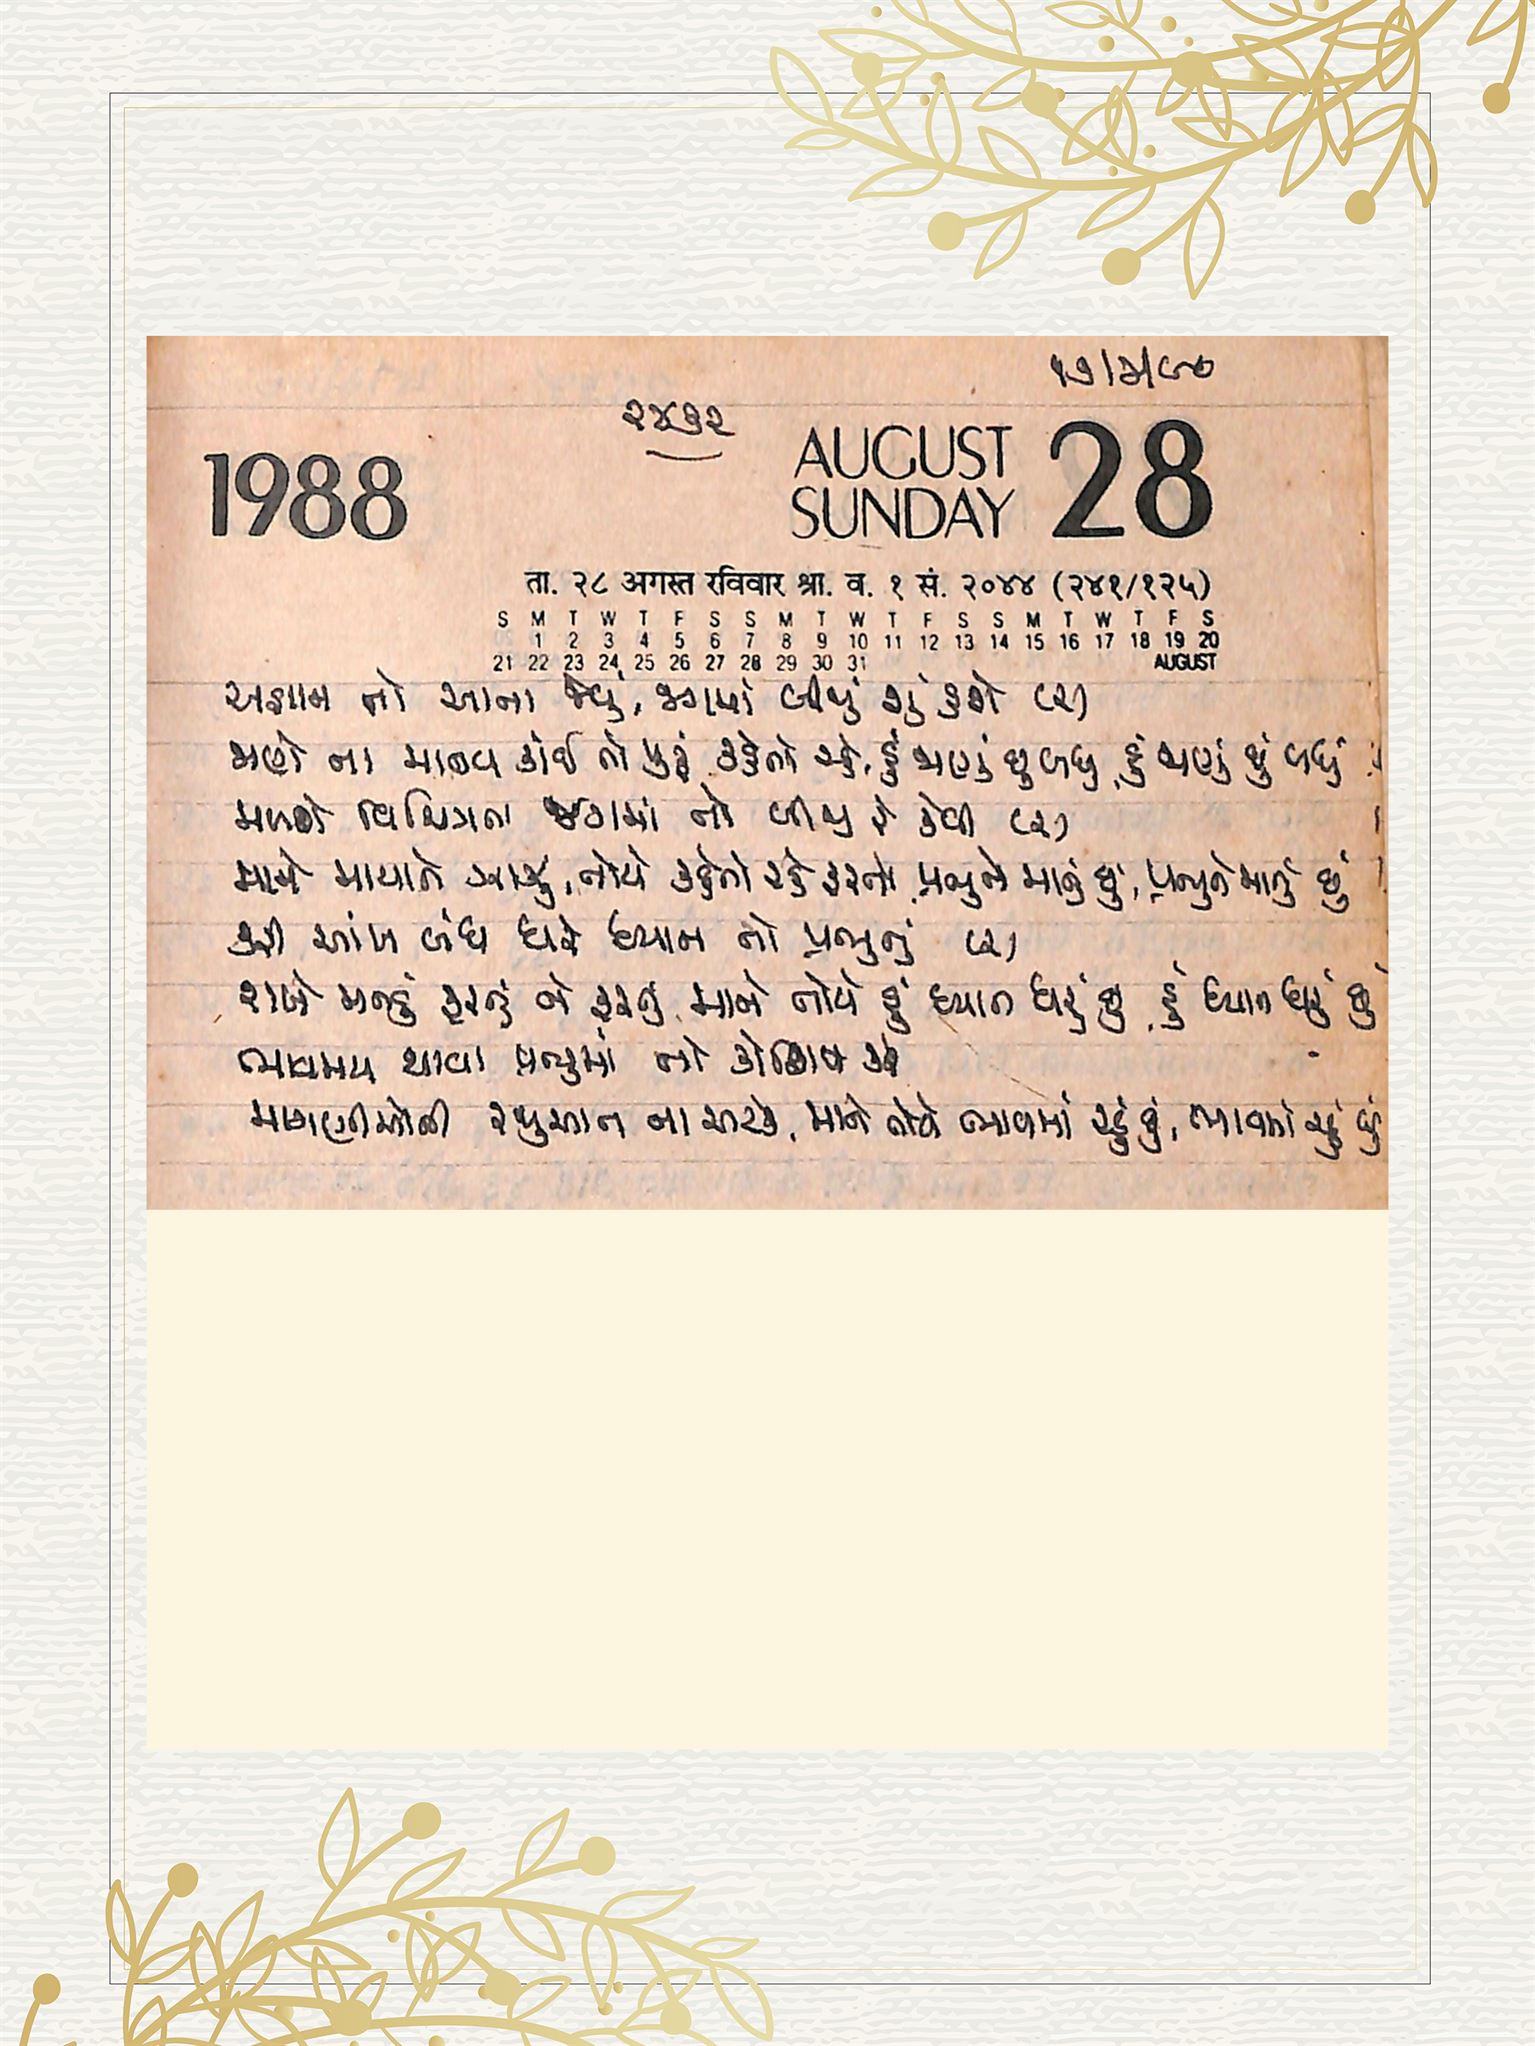 ૧૭/૩/૯૦
૨૪૩૨
1988
AUGUST 28
SUNDAY
ता. २८ अगस्त रविवार श्रा. व. १ सं. २०४४ (२४१/१२५)
S M T W T F S S M T W T F S S M T W T F S
1 2 3 4 5 6 7 8 9 10 11 12 13 14 15 16 17 18 19 20
21 22 23 24 25 26 27 28 29 30 31 AUGUST
અજ્ઞાન તો આના જેવું, જગમાં બીજું શું હશે (૨)
જાણે ના માનવ કાંઈ તો પુરું કહેતો રહે, હું જાણું છું બધું, હું જાણું છું બધું
મળશે વિચિત્રતા જગમાં તો બીજી રે કેવી (૨)
માને માયાને સાચું, તોયે કહેતો રહે ફરતો પ્રભુને માનું છું, પ્રભુને માનું છું
કરી આંખ બંધ ધરે ધ્યાન તો પ્રભુનું (૨)
રાખે મનડું ફરતું ને ફરતું, માને તોયે હું ધ્યાન ધરું છું, હું ધ્યાન ધરું છું
ભાવમય થાવા પ્રભુમાં તો કોશિષ કરે
માગણીઓની રફ્તાર ના અટકે, માને તોયે ભાવમાં રહું છું, ભાવમાં રહું છું